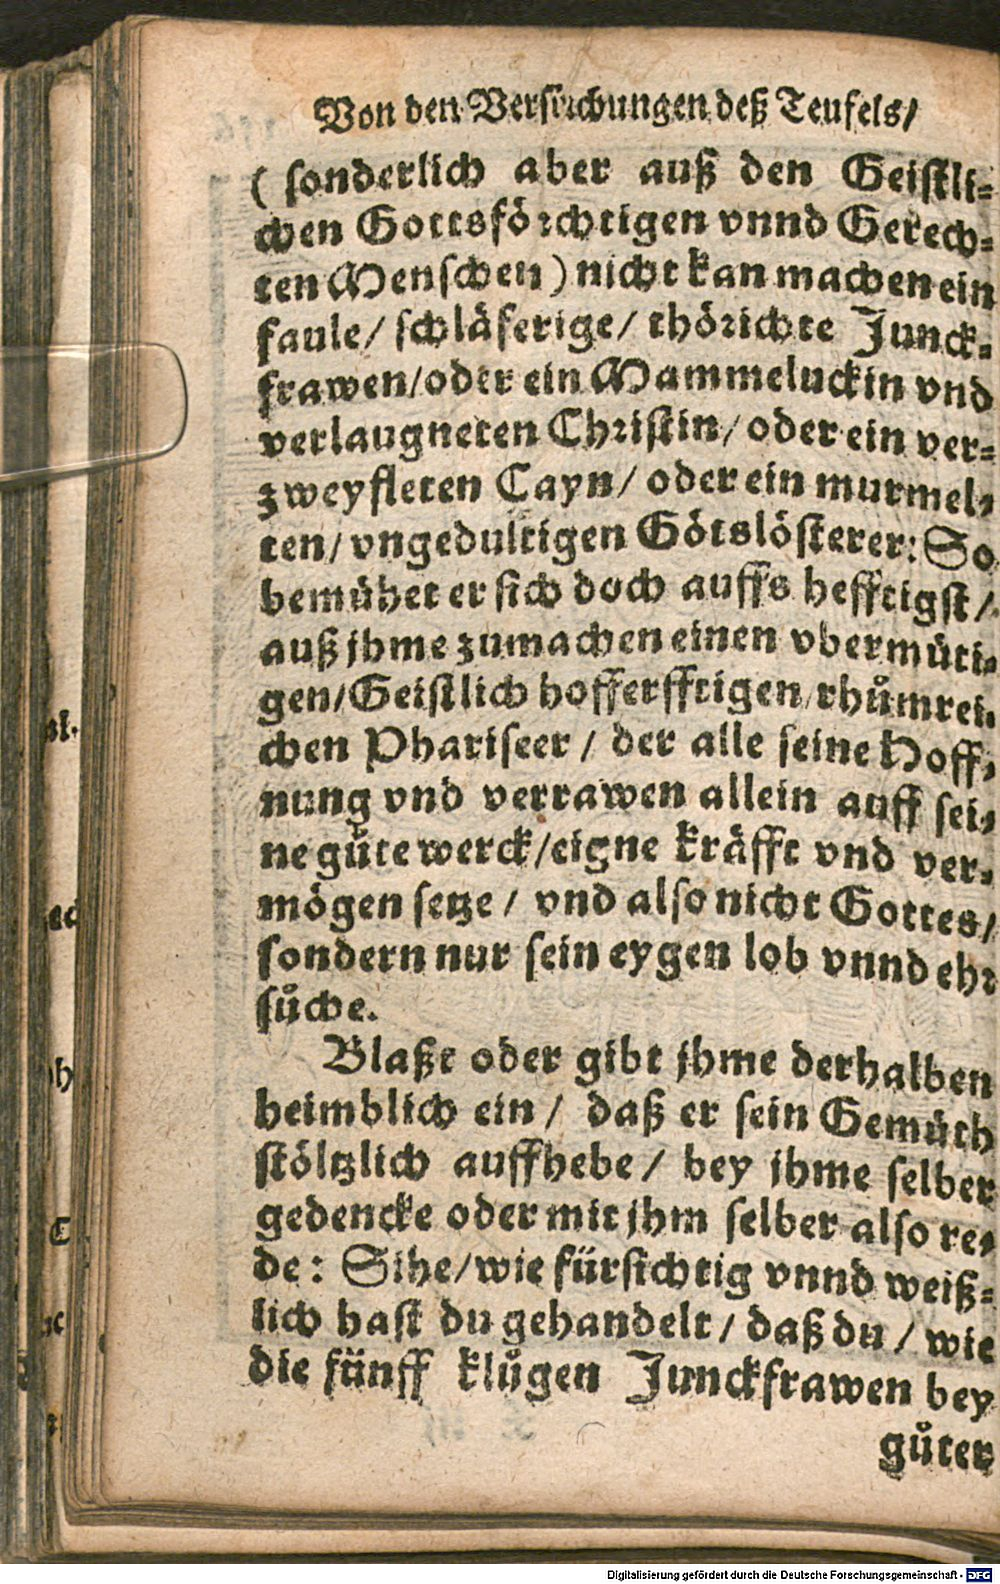 Von den Versuchungen deß Teufels/
( sonderlich aber auß den Geistli-
chen Gottsförchtigen vnnd Gerech-
ten Menschen ) nicht kan machen ein
faule/ schläferige/ thörichte Junck-
frawen/oder ein Mammeluckin vnd
verlaugneten Christin/ oder ein ver-
zweyfleten Cayn/ oder ein murmel-
ten/ vngedultigen Götslösterer: So
bemühet er sich doch auffs hefftigst/
auß jhme zumachen einen vbermüti-
gen/Geistlich hofferfftigen/rhůmrei-
chen Phariseer / der alle seine Hoff-
nung vnd vertrawen allein auff sei-
ne gůte werck/eigne kräfft vnd ver-
mögen setze / vnd also nicht Gottes/
sondern nur sein eygen lob vnnd ehr
sůche.
Blaßt oder gibt jhme derhalben
heimblich ein / daß er sein Gemüth
stöltzlich auffhebe / bey jhme selber
gedencke oder mit jhm selber also re-
de: Sihe/wie fürsichtig vnnd weiß-
lich hast du gehandelt / daß du / wie
die fünff klůgen Junckfrawen bey
gůter
st.
ad
h
C
Digitalisierung gefördert durch die Deutsche Forschungsgemeinschaft - DFG